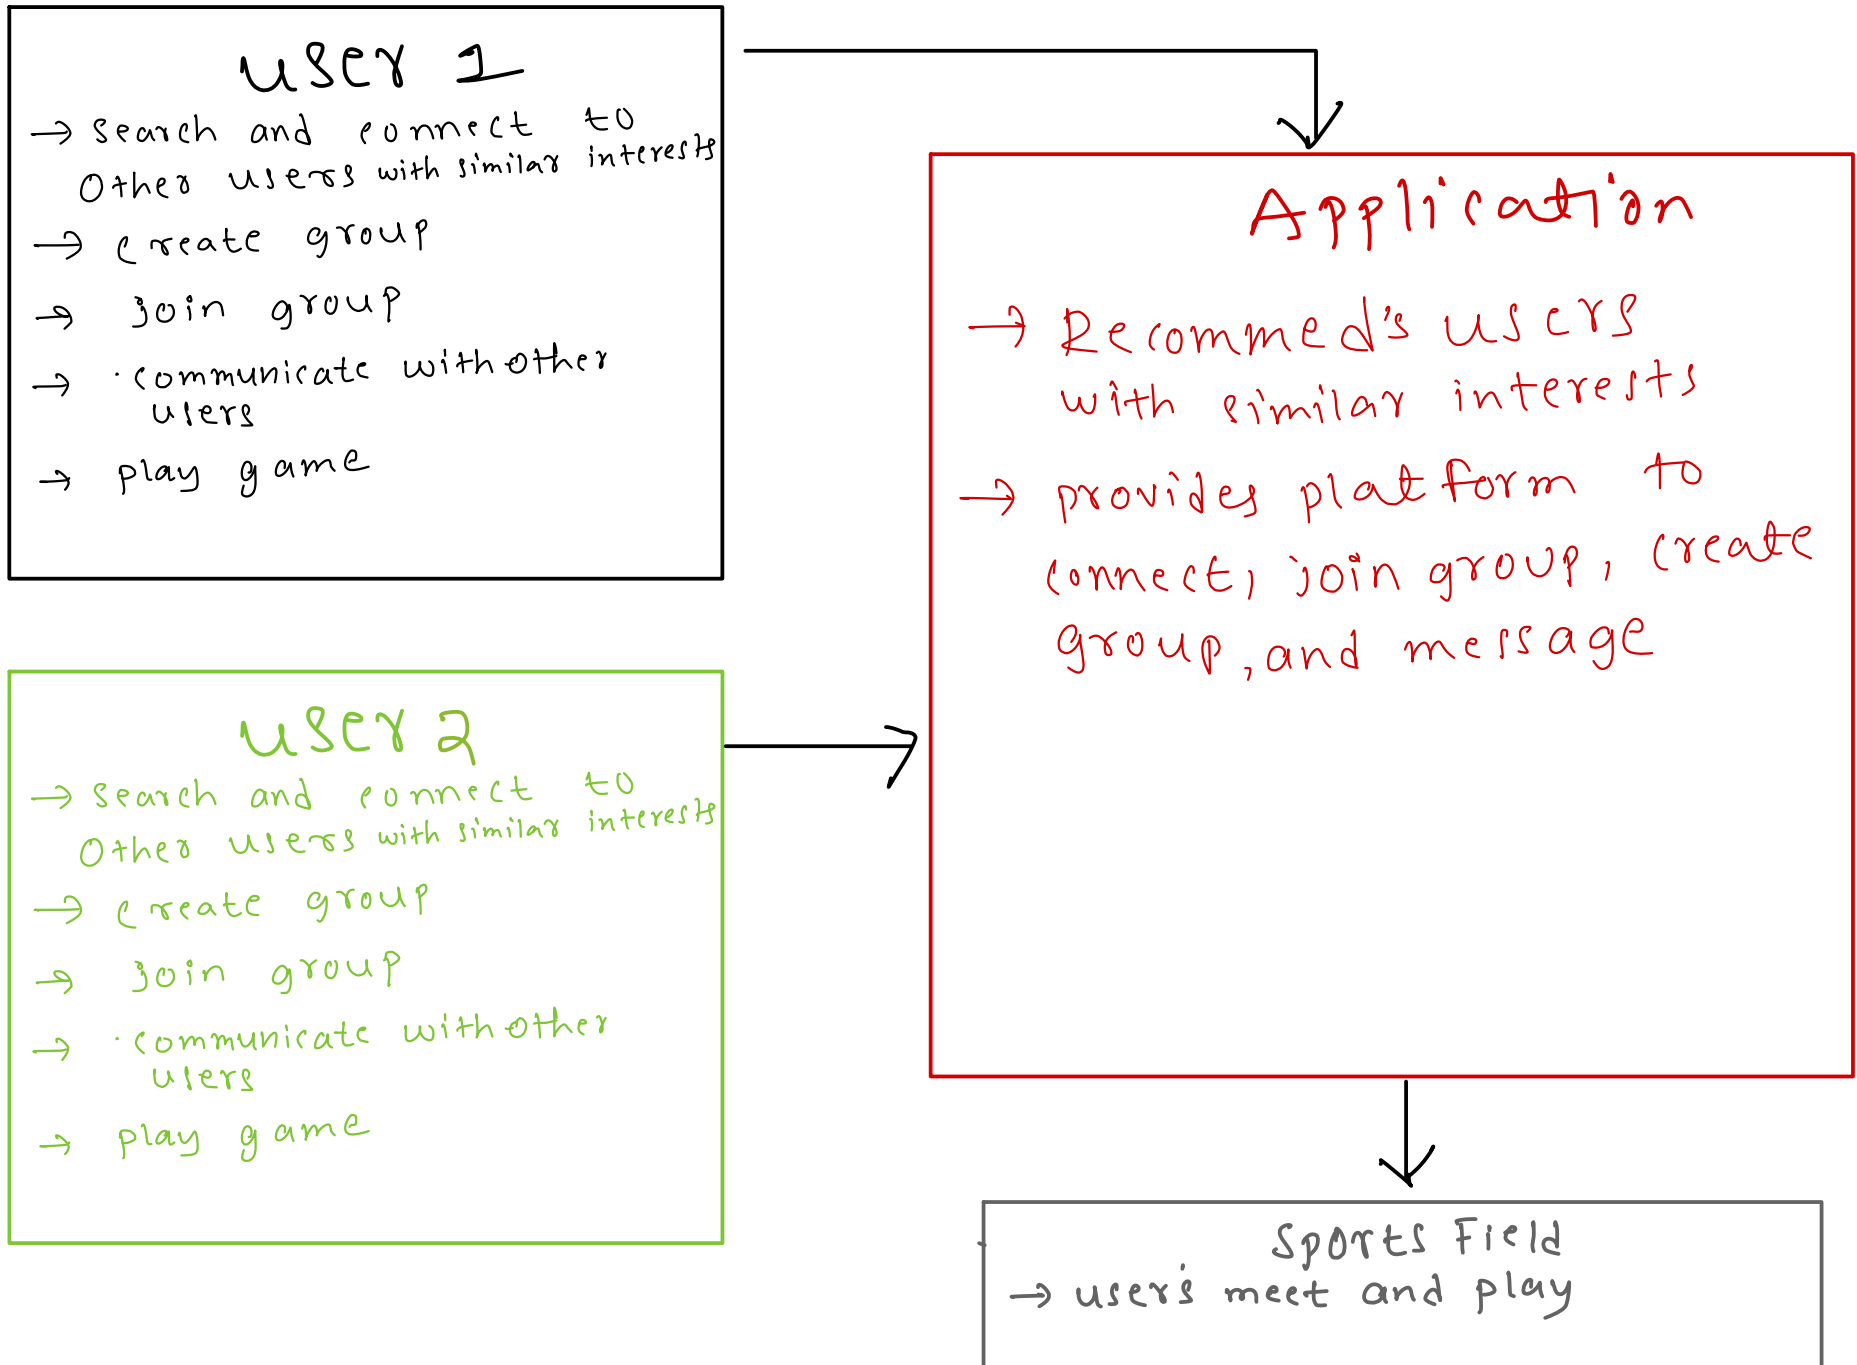 user 1
→ search and connect to
other users with similar interests
→ create group
→ join group
→ communicate with other
users
→ play game
user 2
→ search and connect to
other users with similar interests
→ create group
→ join group
→ communicate with other
users
→ play game
Application
→ Recommed's users
with similar interests
→ provides platform to
connect, join group, create
group, and message
Sports Field
→ user's meet and play